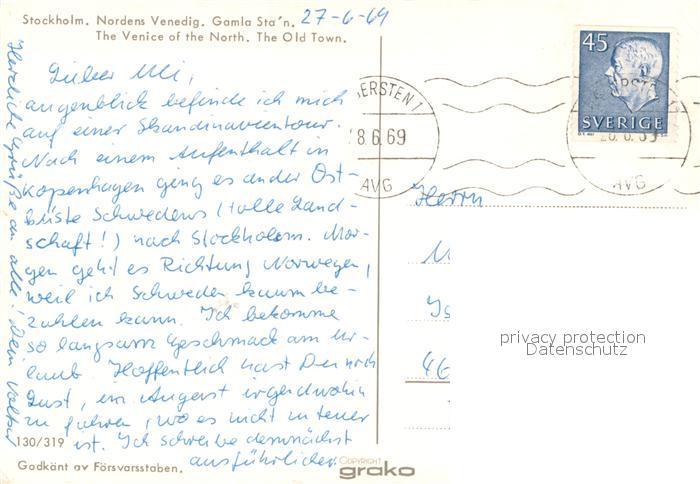 Stockholm. Nordens Venedig. Gamla Sta'n.
The Venice of the North. The Old Town.
27-6-69
Lieber Uli,
augenblick befinde ich mich
auf einer Skandinavientour.
Nach einem Aufenthalt in
Kopenhagen ging es an der Ost-
küste Schwedens (tolle Land-
schaft!) nach Stockholm. Mor-
gen geht es Richtung Norwegen,
weil ich Schweden kaum be-
zahlen kann. Ich bekomme
so langsam Geschmack am Ur-
laub. Hoffentlich hast Du noch
Lust, im August irgendwohin
zu fahren, wo es nicht so teuer
ist. Ich schreibe demnächst
ausführlicher.
Herzliche Grüße an alle! Dein
130/319
Godkänt av Försvarsstaben.
COPYRIGHT
grako
ERSTEN 1
8.6.69
AVG
45
SVERIGE
AVG
Herrn
U
46
privacy protection
Datenschutz